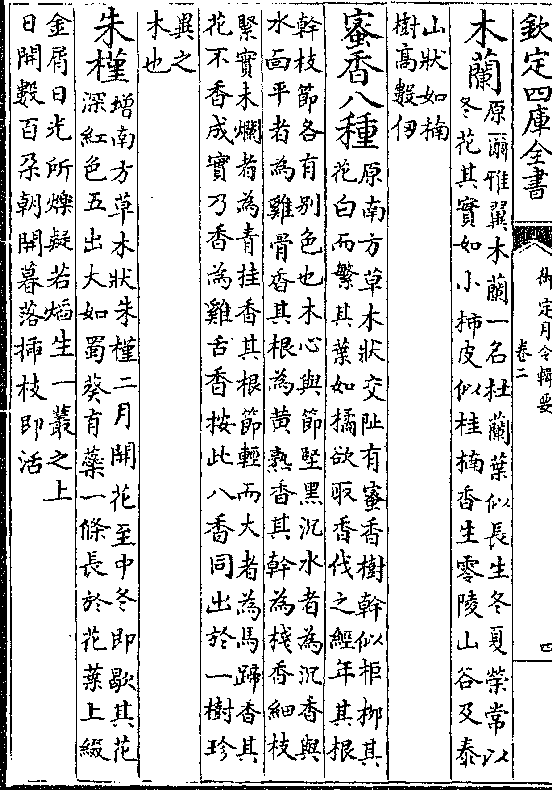 欽定四庫全書
御定月令輯要
卷二
四
木蘭
原爾雅翼木蘭一名杜蘭葉似長生冬夏榮常以
冬花其實如小柿皮似桂楠香生零陵山谷及泰
山狀如楠
樹高數仞
蜜香八種
原南方草木狀交阯有蜜香樹幹似柜柳其
花白而繁其葉如橘欲取香伐之經年其根
幹枝節各有別色也木心與節堅黑沉水者為沉香與
水面平者為雞骨香其根為黃熟香其幹為棧香細枝
緊實未爛者為青桂香其根節輕而大者為馬蹄香其
花不香成實乃香為雞舌香按此八香同出於一樹珍
異之
木也
朱槿
增南方草木狀朱槿二月開花至中冬即歇其花
深紅色五出大如蜀葵有蘂一條長於花葉上綴
金屑日光所爍疑若焰生一叢之上
日開數百朶朝開暮落插枝即活